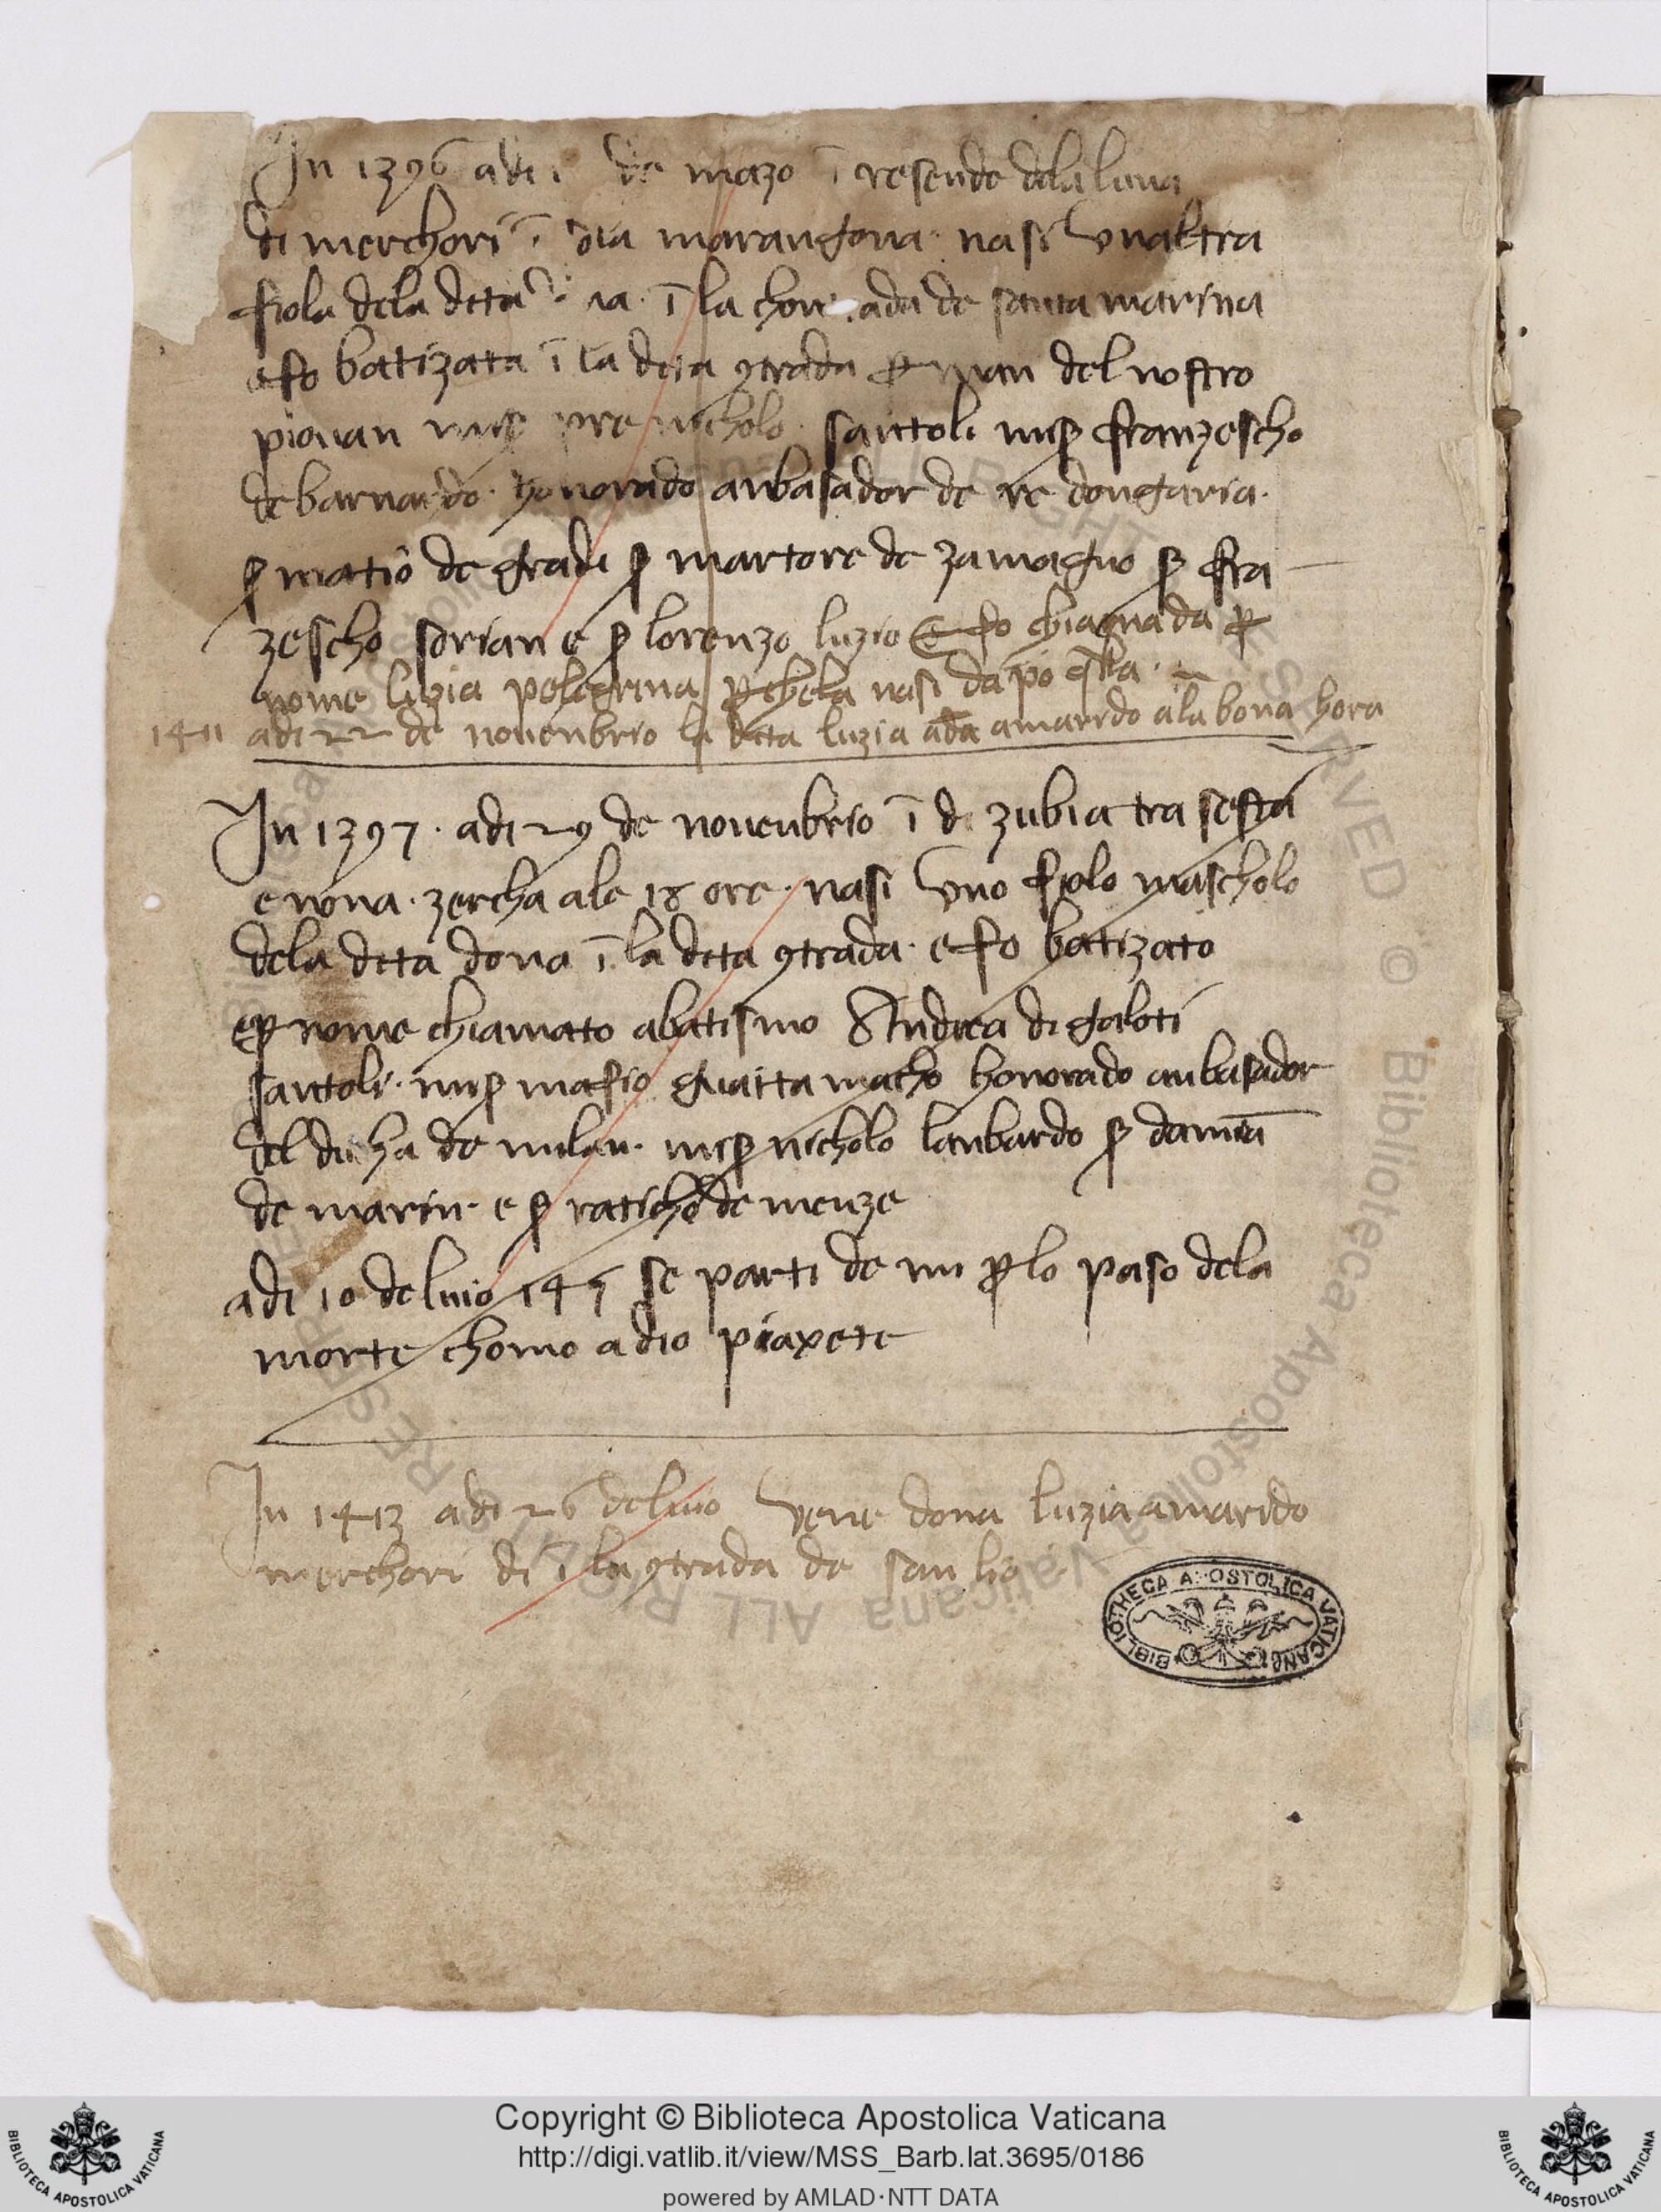 In 1396 adi 1 de mazo ī cresende dela luna
di merchori ī dia marangona · nasi una altra
fiola dela deta ī la chontrada de santa marina
e fo batizata ī la deta ꝯtrada ꝑ man del nostro
piovan miß pre nicholo · santoli miß franzescho
de barnardo · honorado anbasador de re dongaria ·
ß matiō de gradi ß martore de zamagno ß fra
zescho sorian e ß lorenzo luzio E fo chiamada ꝑ
nome luzia pelegrina ꝑ chela nasi da po qsta ·
1411 adi 22 de novenbrio la deta luzia ada amarido ala bona hora
In 1397 · adi 29 de novenbrio ī di zubia tra sesta
e nona · zercha ale 18 ore · nasi uno fiolo mascholo
dela deta dona ī la deta ꝯtrada · e fo batizato
e ꝑ nome chiamato abatismo Andrea di galoti
santoli · miß mafio guaita macho honorado anbasador
del ducha de milan · miß nicholo lanbardo ß damiā
de marin · e ß raticho de menze
adi 10 de luio se parti de mi ꝑ lo paso dela
morte chomo a dio piaxete
In 1413 adi 26 de luio vene dona luzia amarido
merchori di ī la ꝯtrada de san lio
BIBLIOTHECA APOSTOLICA VATICANA
© Biblioteca Apostolica Vaticana ALL RIGHTS RESERVED
Copyright © Biblioteca Apostolica Vaticana
http://digi.vatlib.it/view/MSS_Barb.lat.3695/0186
powered by AMLAD·NTT DATA
BIBLIOTECA APOSTOLICA VATICANA
BIBLIOTECA APOSTOLICA VATICANA